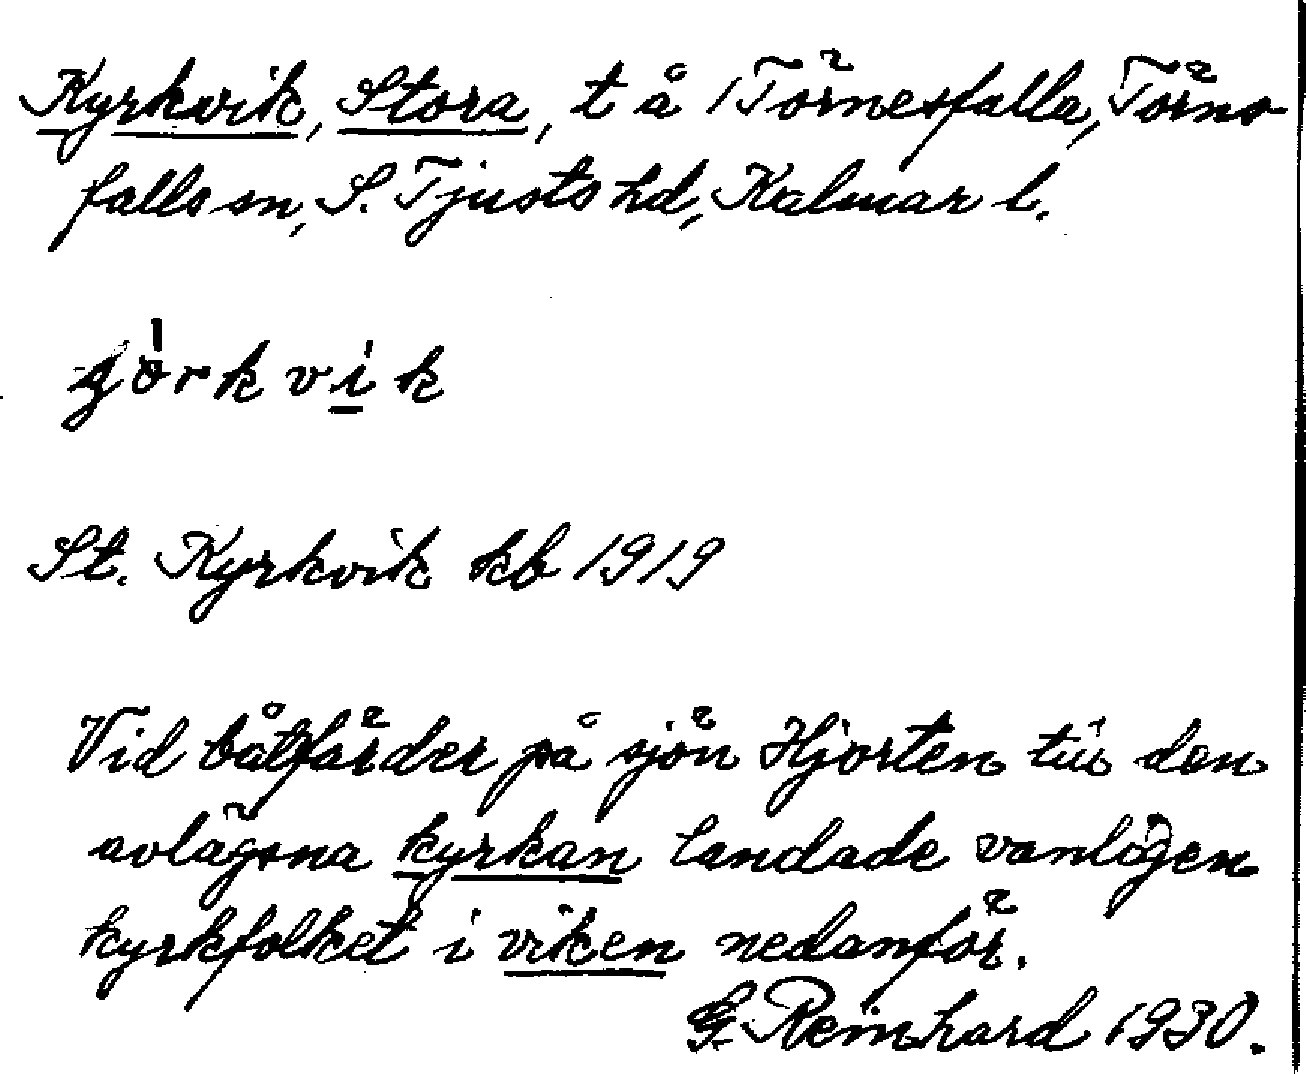 Kyrkvik, Stora, t å 1 Törnesfalla, Törns-
falls sn, S. Tjusts hd, Kalmar l.
görkvik
St. Kyrkvik kb 1919
Vid båtfärder på sjön Hjorten till den
avlägsna kyrkan landade vanligen
kyrkfolket i viken nedanför.
G. Reinhard 1930.